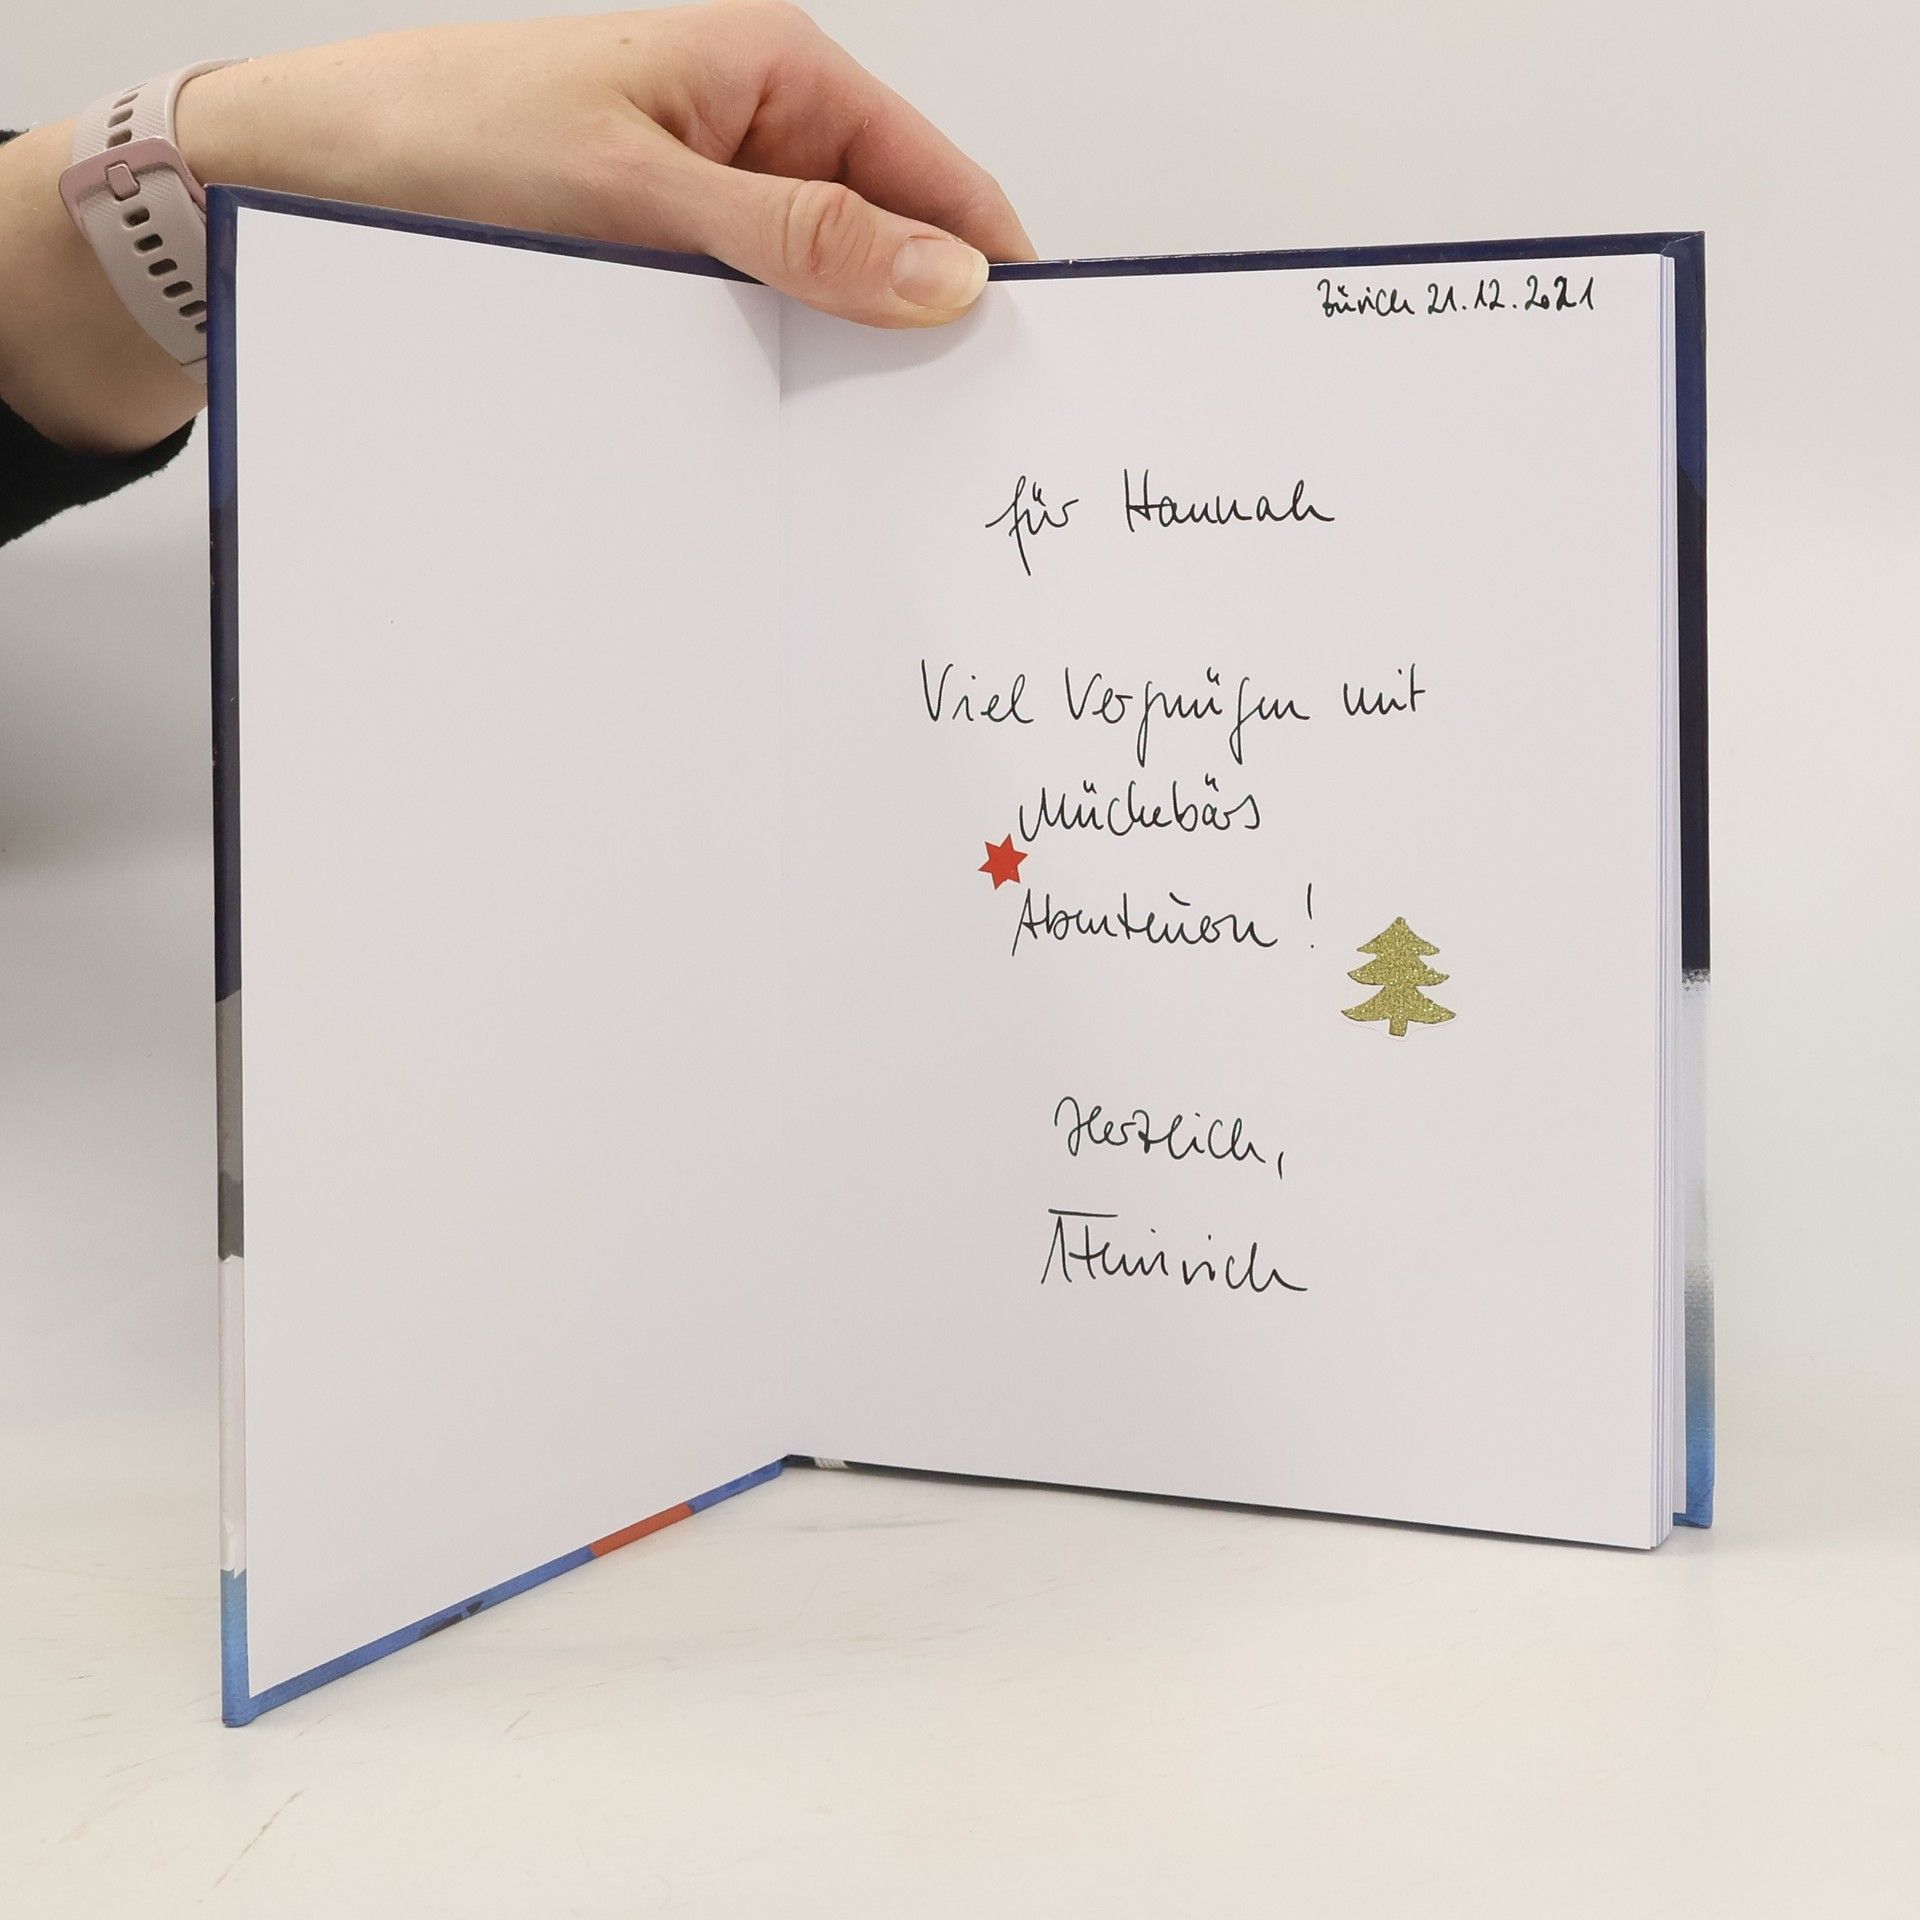 Zürich 21.12.2021
für Hannah
Viel Vergnügen mit
Mückebärs
Abenteuern!
Herzlich,
Heinrich